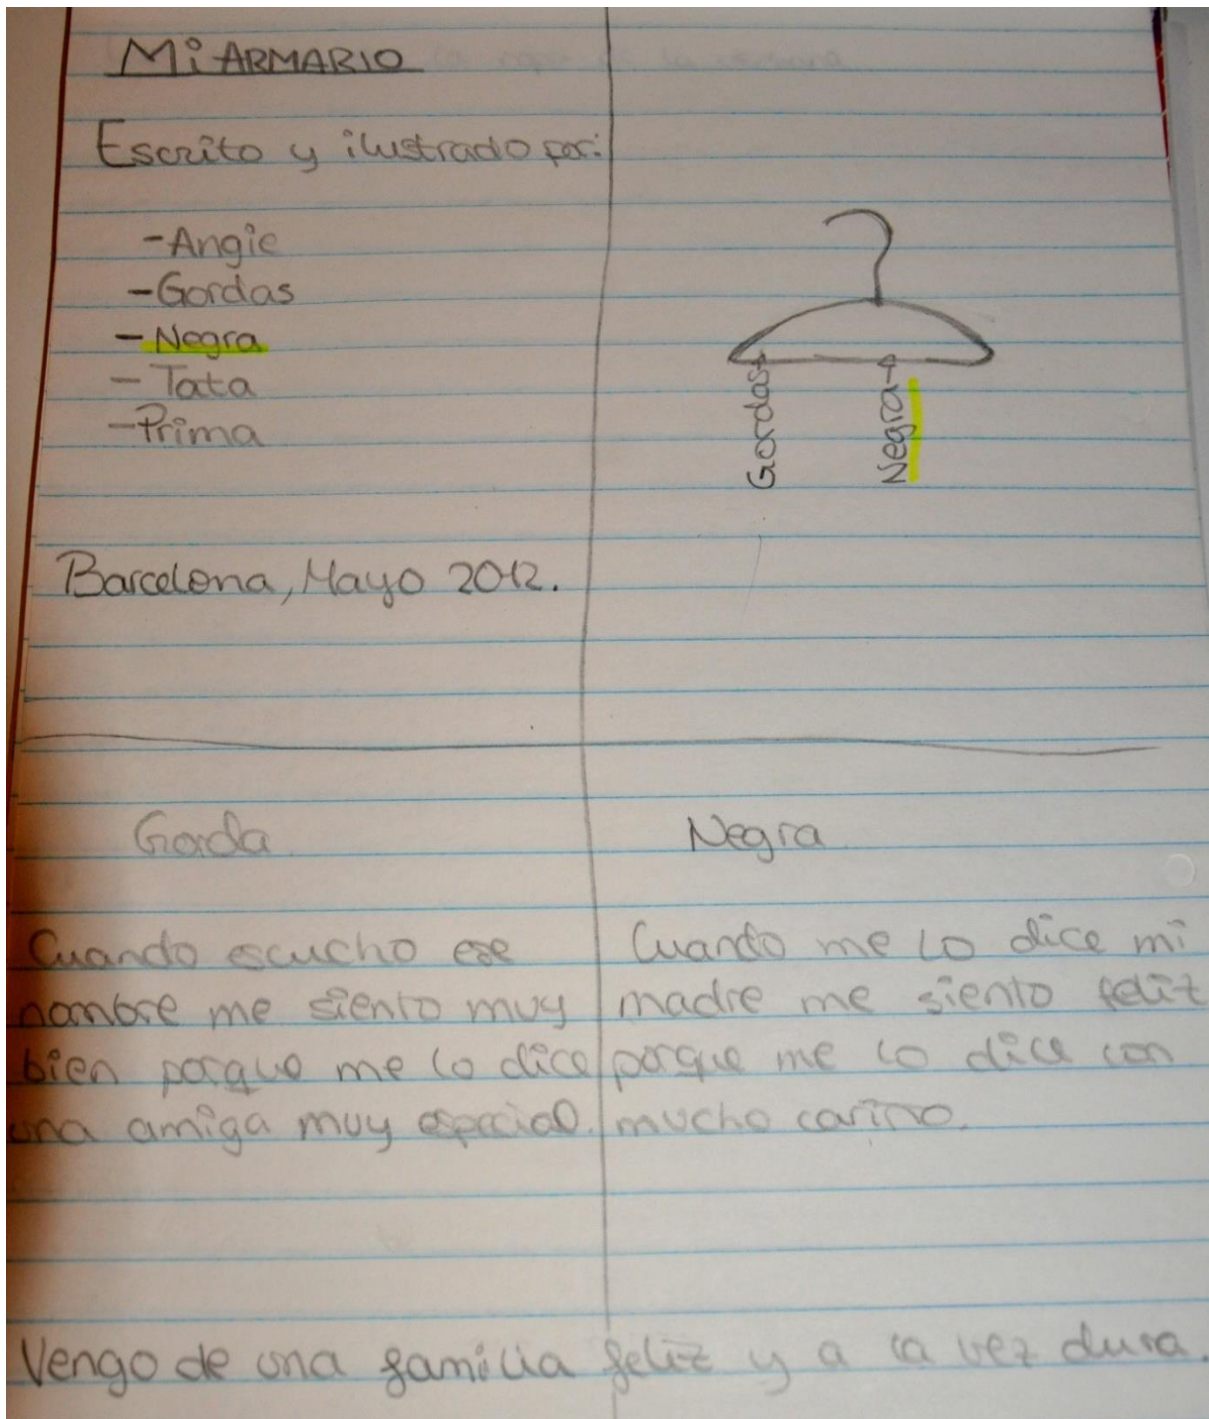 Mi ARMARIO
Escrito y ilustrado por:
- Angie
- Gordas
- Negra
- Tata
- Prima
Barcelona, Mayo 2012.
Gordas
Negra
Gorda
Cuando escucho ese
nombre me siento muy
bien porque me lo dice
una amiga muy especial.
Negra
Cuando me lo dice mi
madre me siento feliz
porque me lo dice con
mucho cariño.
Vengo de una familia feliz y a la vez dura.